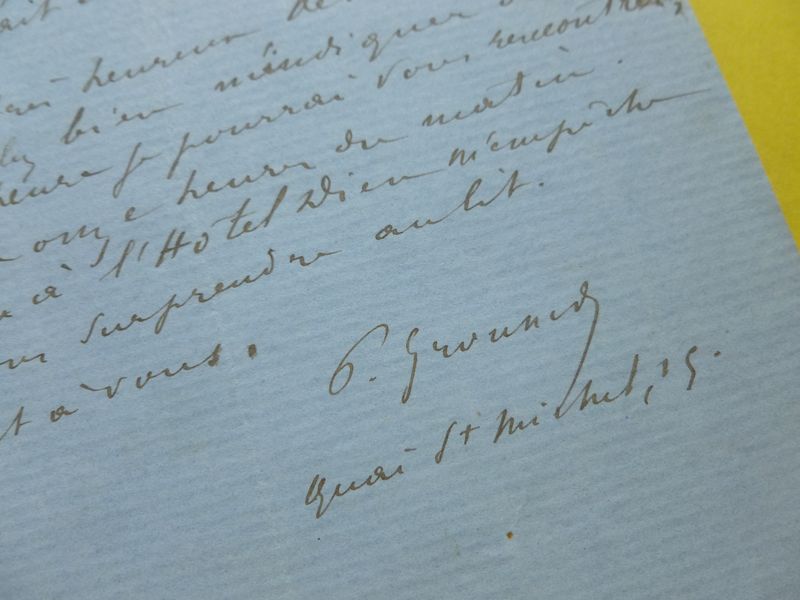 heureux de
bien m'indiquer
heure je pourrai vous rencontrer,
onze heures du matin.
à l'Hôtel Dieu m'empêche
surprendre au lit.
à vous.
P. Grousset
Quai St Michel, 19.